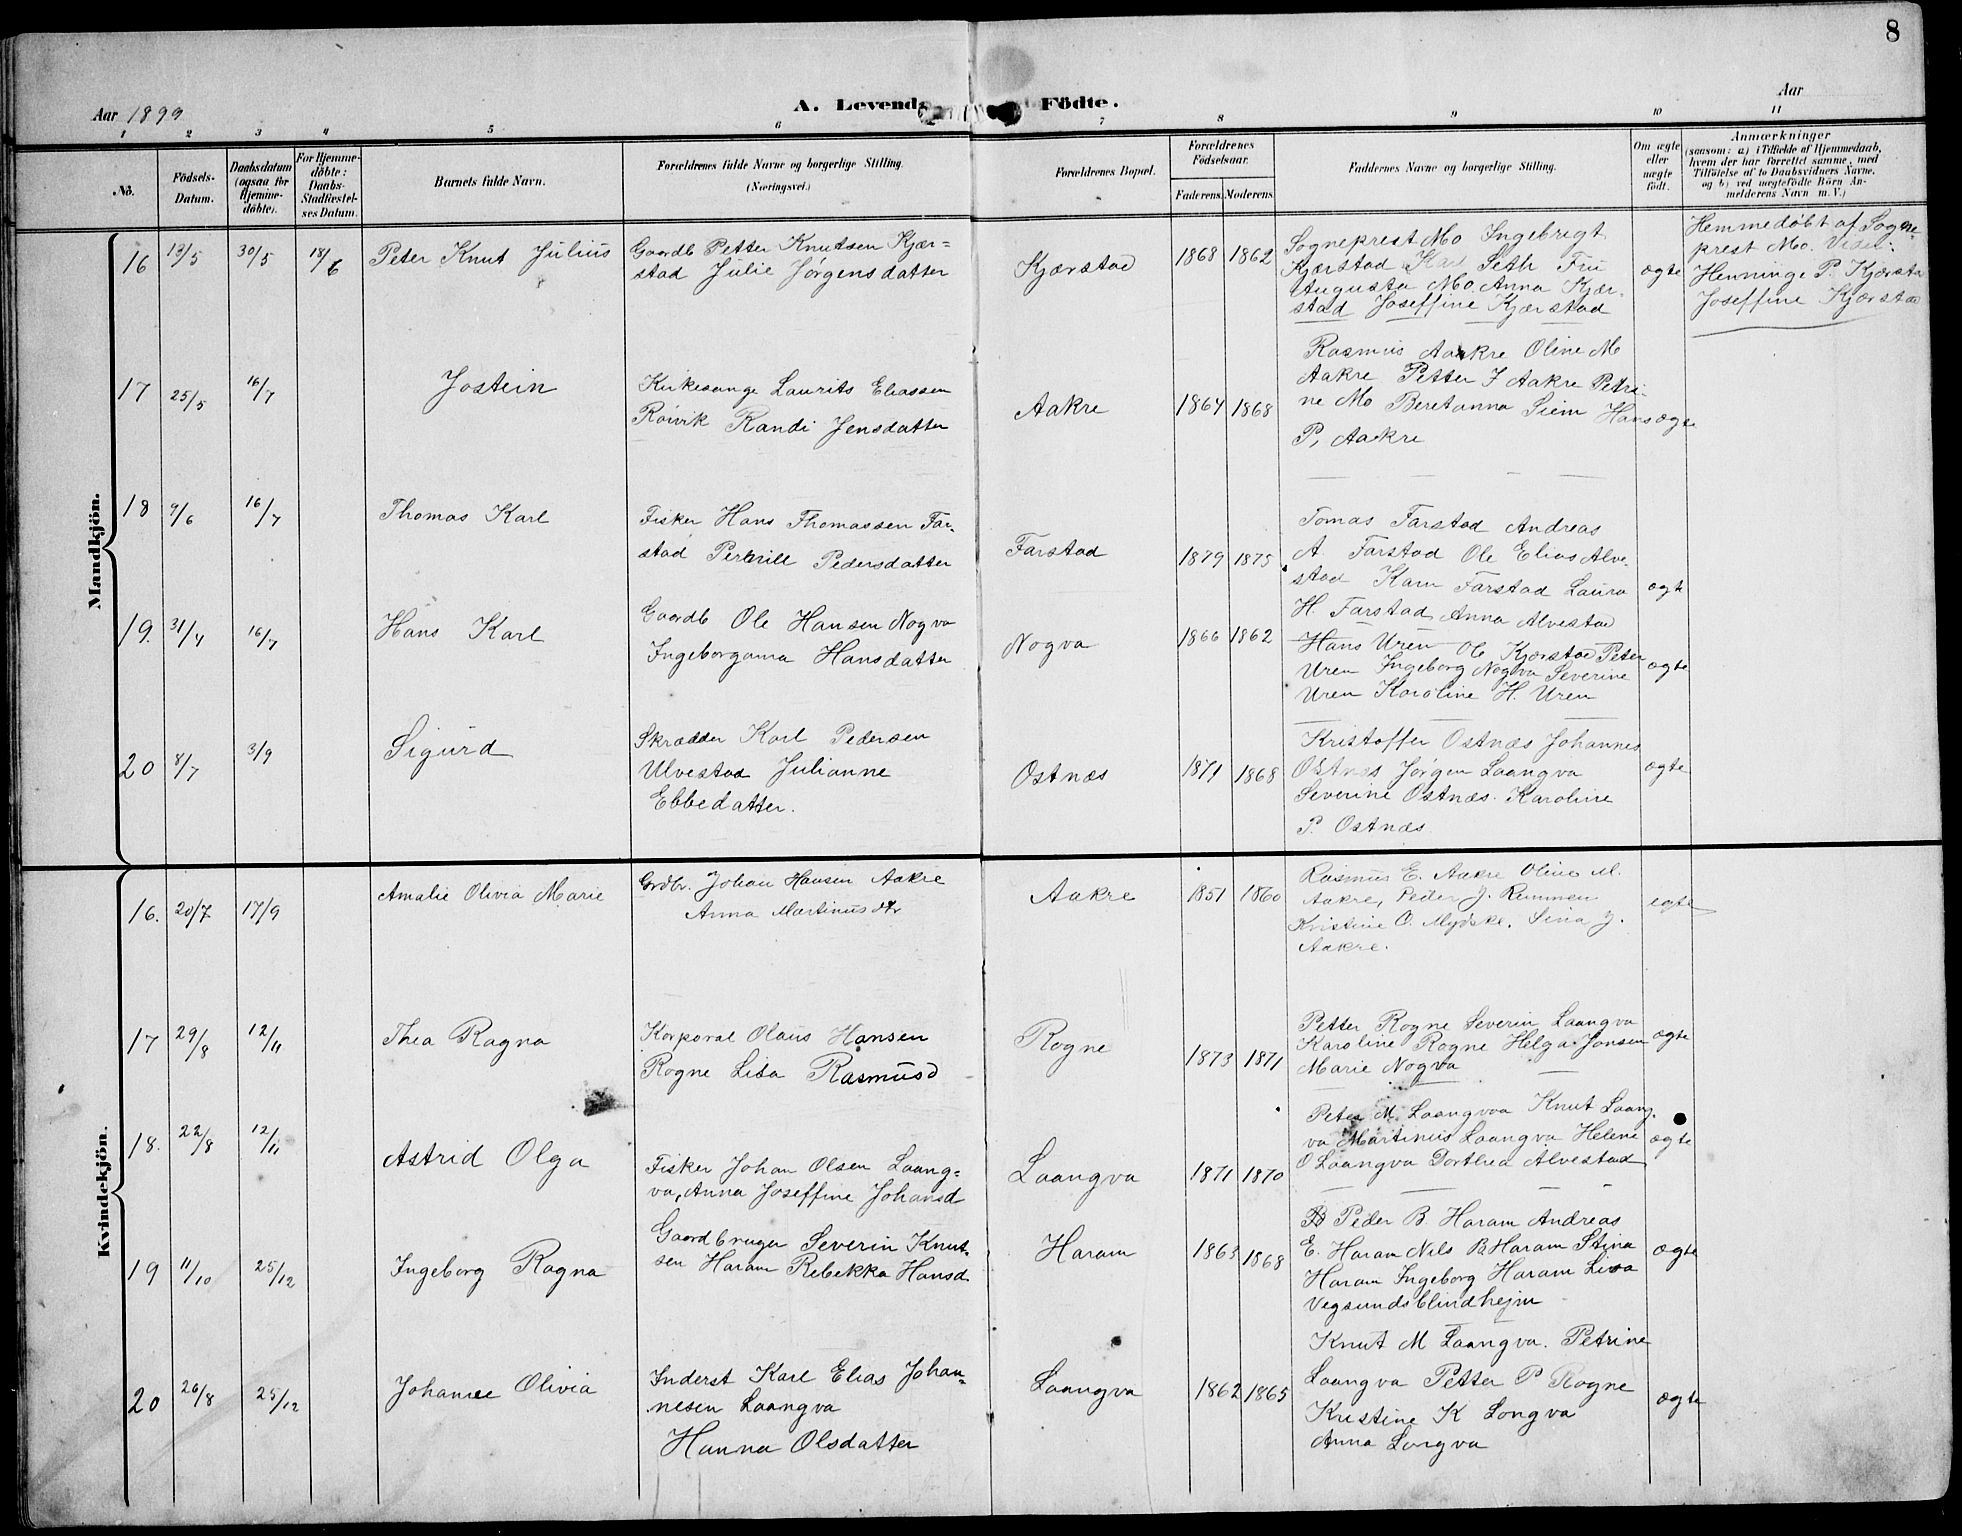 8
Aar 1899
A. Levende Födte.
Aar
1 2 3 4 5 6 7 8 9 10 11
No.
Födsels-Datum.
Daabsdatum (ogsaa for Hjemme-döbte).
For Hjemme-döbte: Daabs-Stadfæstel-ses Datum.
Barnets fulde Navn.
Forældrenes fulde Navne og borgerlige Stilling. (Næringsvei.)
Forældrenes Bopæl.
Forældrenes Födselsaar.
Faderens. Moderens.
Faddernes Navne og borgerlige Stilling.
Om ægte eller uægte födt.
Anmærkninger
(saasom: a) i Tilfælde af Hjemmedaab, hvem der har forrettet samme, med Tilföielse af to Daabsvidners Navne, og b) ved uægtefödte Börn An-melderens Navn m. V.)
Mandkjön.
16 13/5 30/5 18/6 Peter Knut Julius
Gaardb Petter Knutsen Kjær=
stad Julie Jørgensdatter
Kjærstad 1868 1862
Sogneprest Mo Ingebrigt
Kjærstad Karl Seth Fru
Augusta Mo Anna Kjær-
stad Joseffine Kjærstad
ægte
Hemmedøbt af Sogne-
prest Mo. Viden:
Henninge P. Kjærsta
Joseffine Kjærstad
17 25/5 16/7 Jostein
Kirkesange Laurits Eliassen
Røivik Randi Jensdatter
Aakre 1864 1868
Rasmus Aakre Oline M
Aakre Petter J Aakre Petri-
ne Mo Beretanna Siem Hans
P. Aakre
ægte
18 9/6 16/7 Thomas Karl
Fisker Hans Thomassen Far-
stad Pernill Pedersdatter
Farstad 1879 1875
Tomas Farstad Andreas
A. Farstad Ole Elias Alve-
stad Karn Farstad Laura
H. Farstad, Anna Alvestad
ægt
19. 31/4 16/7 Hans Karl
Gaardb Ole Hansen Nogva
Ingeborganna Hansdatter
Nogva 1866 1862
Hans Uren Ole Kjærstad Peter
Uren Ingeborg Nogva Severine
Uren Karoline H. Uren
ægte
20 8/7 3/9 Sigurd
Skrædder Karl Pedersen
Ulvestad Julianne
Ebbedatter.
Ostnæs 1871 1868
Kristoffer Ostnæs Johannes
Ostnæs Jørgen Laangva
Severine Ostnæs. Karoline
P. Ostnæs
ægte
Kvindekjön.
16. 20/7 17/9 Amalie Olivia Marie
Grdbr. Johan Hansen Aakre
Anna Martinusdtr
Aakre 1851 1860
Rasmus E. Aakre Oline M.
Aakre, Peder J. Rummen
Kristine O. Mydske. Sina J.
Aakre.
egte
17 29/8 12/11 Thea Ragna
Korporal Olaus Hansen
Rogne Lisa Rasmusd
Rogne 1873 1871
Petter Rogne Severin Laangva
Karoline Rogne Helga Jonsen
Marie Nogva
ægte
18. 22/8 12/11 Astrid Olga
Fisker Johan Olsen Laang=
va, Anna Joseffine Johansd
Laangva 1871 1870
Peter M. Laangvaa Knut Laang-
va Martinius Laangva Helene
O Laangva Dorthea Alvestad
ægte
19 11/10 25/12 Ingeborg Ragna
Gaardbruger Severin Knut-
sen Haram Rebekka Hansd
Haram 1863 1868
Peder B. Haram Andreas
E. Haram Nils B Haram Stina
Haram Ingeborg Haram Lisa
Vegsundsblindhejm
ægte
20 26/8 25/12 Johanne Olivia
Inderst Karl Elias Johan-
nesen Laangva
Hanna Olsdatter
Laangva 1862 1865
Knut M Laangva. Petrine
Laangva Petter P Rogne
Kristine K Longva
Anna Longva
ægte